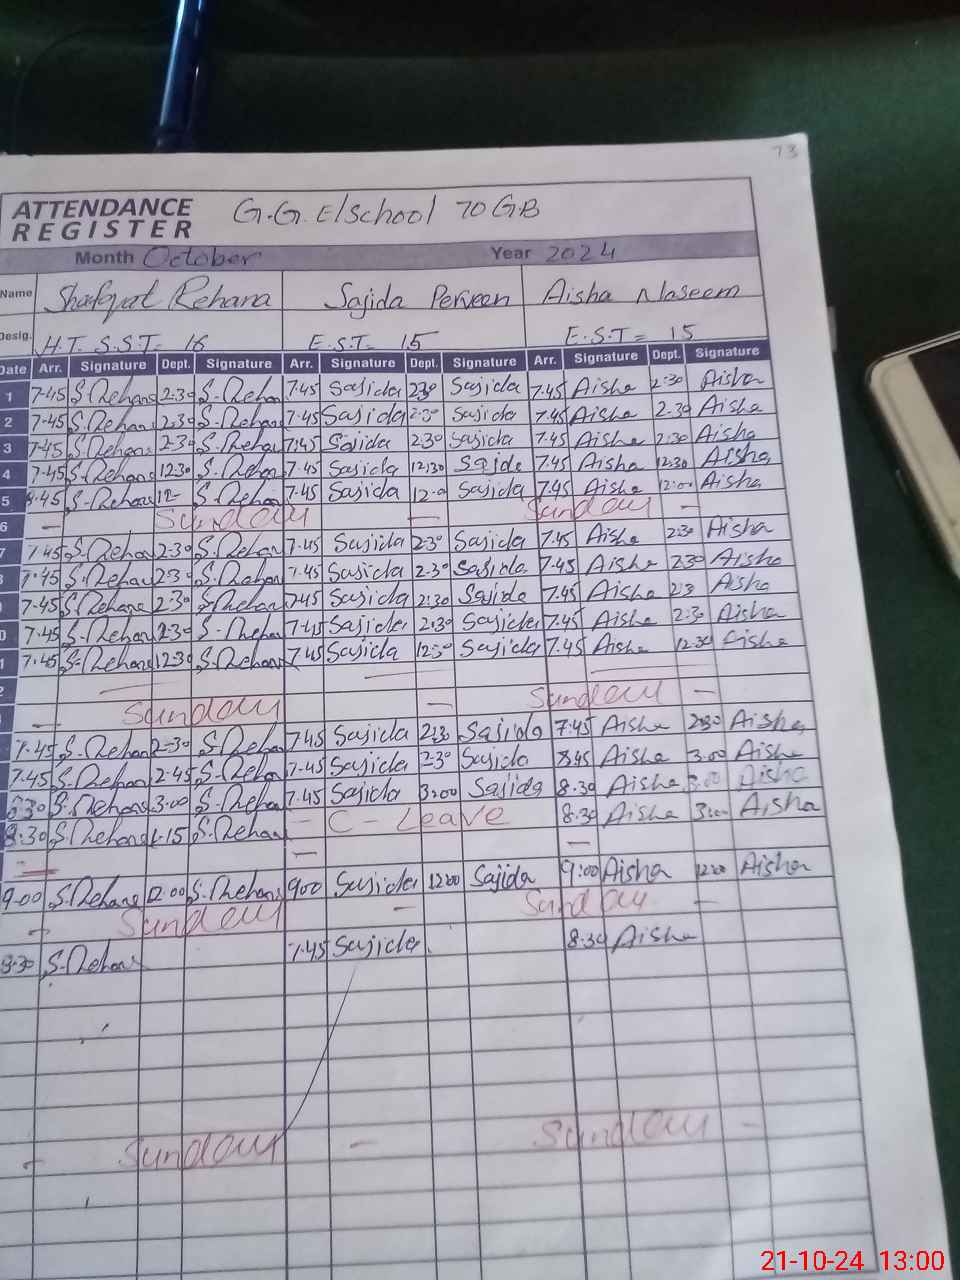 73
ATTENDANCE REGISTER G.G.E/school 70 GB
Month October Year 2024
Name Shafqat Rehana Sajida Perveen Aisha Naseem
Desig. H.T. S.S.T= 16 E.S.T= 15 E.S.T= 15
Date Arr. Signature Dept. Signature Arr. Signature Dept. Signature Arr. Signature Dept. Signature
1 7-45 S.Rehana 2-30 S.Rehana 7.45 Sajida 2.30 Sajida 7.45 Aisha 2:30 Aisha
2 7-45 S.Rehana 2.30 S.Rehana 7.45 Sajida 2.30 Sajida 7.45 Aisha 2.30 Aisha
3 7-45 S.Rehana 2.30 S.Rehana 7.45 Sajida 2.30 Sajida 7.45 Aisha 2:30 Aisha
4 7-45 S.Rehana 12.30 S.Rehana 7.45 Sajida 12.30 Sajida 7.45 Aisha 12.30 Aisha
5 S-Rehana 12- S.Rehana 7.45 Sajida 12.0 Sajida 7.45 Aisha 12:00 Aisha
6 — Sunday — Sunday —
7 7.45 S.Rehana 2-30 S.Rehana 7.45 Sajida 2.30 Sajida 7.45 Aisha 2.30 Aisha
7.45 S.Rehana 2.30 S.Rehana 7.45 Sajida 2.30 Sajida 7.45 Aisha 2.30 Aisha
7.45 S.Rehana 2.30 S.Rehana 7.45 Sajida 2:30 Sajida 7.45 Aisha 2.3 Aisha
7.45 S.Rehana 2.30 S.Rehana 7.45 Sajida 2.30 Sajida 7.45 Aisha 2.30 Aisha
7.45 S.Rehana 12.30 S.Rehana 7.45 Sajida 12.30 Sajida 7.45 Aisha 12.30 Aisha
— Sunday — Sunday —
7.45 S.Rehana 2-30 S.Rehana 7.45 Sajida 2.30 Sajida 7.45 Aisha 2.30 Aisha
7.45 S.Rehana 2-45 S.Rehana 7.45 Sajida 2.30 Sajida 8.45 Aisha 3.00 Aisha
8.30 S.Rehana 3.00 S.Rehana 7.45 Sajida 3.00 Sajida 8.30 Aisha 3.00 Aisha
8.30 S.Rehana 1.15 S.Rehana — C-Leave 8.30 Aisha 3:00 Aisha
9.00 S.Rehana 12.00 S.Rehana 9.00 Sajida 12.00 Sajida 9:00 Aisha 12.00 Aisha
Sunday — Sunday —
8.30 S.Rehana 7.45 Sajida 8.30 Aisha
Sunday — Sunday —
21-10-24 13:00